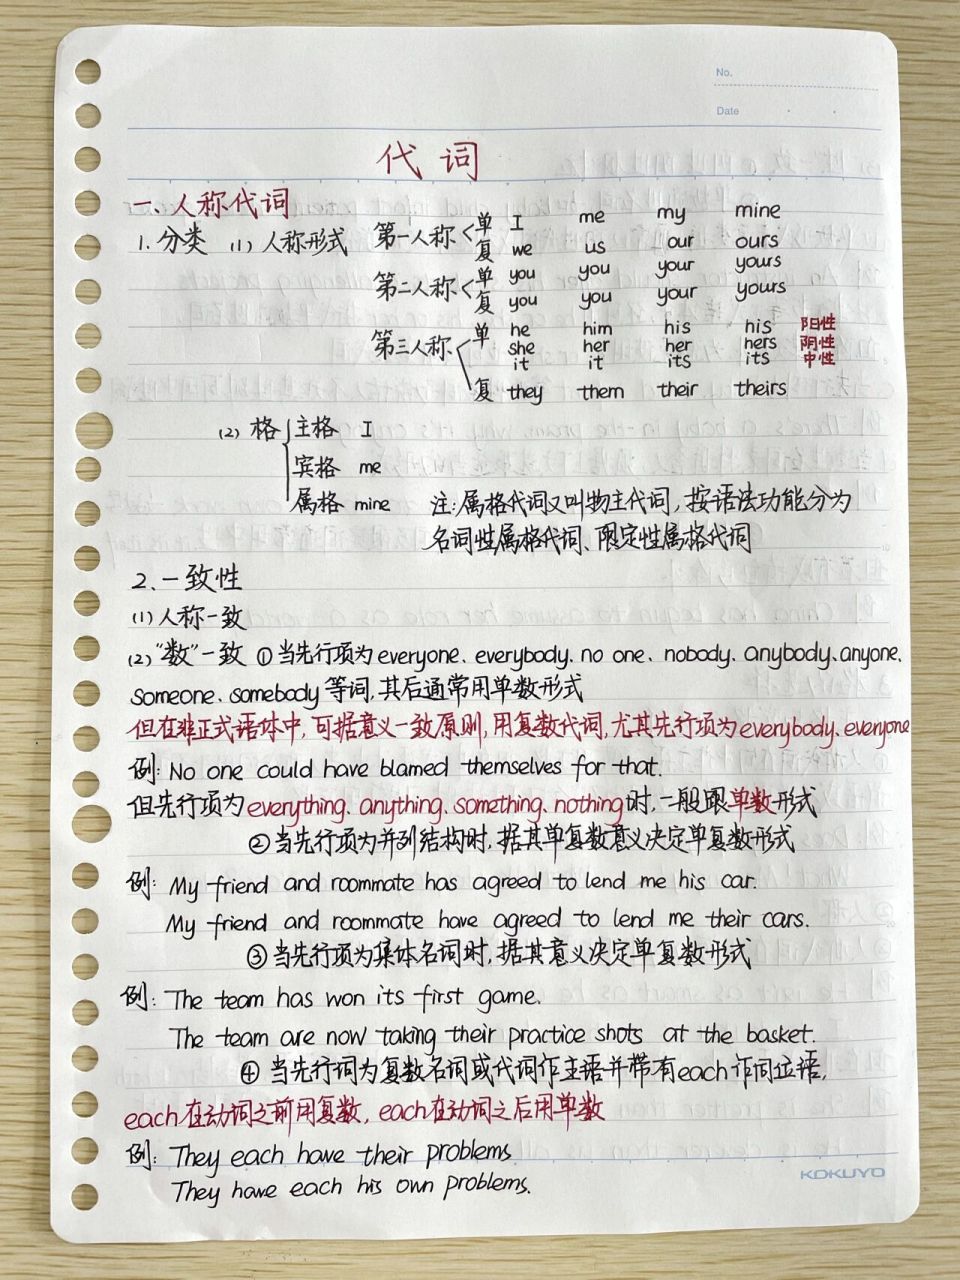 No.
Date
代词
一、人称代词
1.分类 (1)人称形式 第一人称 单 I me my mine
复 we us our ours
第二人称 单 you you your yours
复 you you your yours
第三人称 单 he him his his 阳性
she her her hers 阴性
it it its its 中性
复 they them their theirs
(2) 格 主格 I
宾格 me
属格 mine 注:属格代词又叫物主代词,按语法功能分为
名词性属格代词、限定性属格代词
2.一致性
(1)人称一致
(2)"数"一致 ①当先行项为everyone、everybody、no one、nobody、anybody、anyone、
someone、somebody等词,其后通常用单数形式
但在非正式语体中,可据意义一致原则,用复数代词,尤其先行项为everybody、everyone
例: No one could have blamed themselves for that.
但先行项为everything、anything、something、nothing时,一般跟单数形式
②当先行项为并列结构时,据其单复数意义决定单复数形式
例: My friend and roommate has agreed to lend me his car.
My friend and roommate have agreed to lend me their cars.
③当先行项为集体名词时,据其意义决定单复数形式
例: The team has won its first game.
The team are now taking their practice shots at the basket.
④当先行词为复数名词或代词作主语并带有each作同位语,
each在动词之前用复数,each在动词之后用单数
例: They each have their problems
They have each his own problems.
KOKUYO